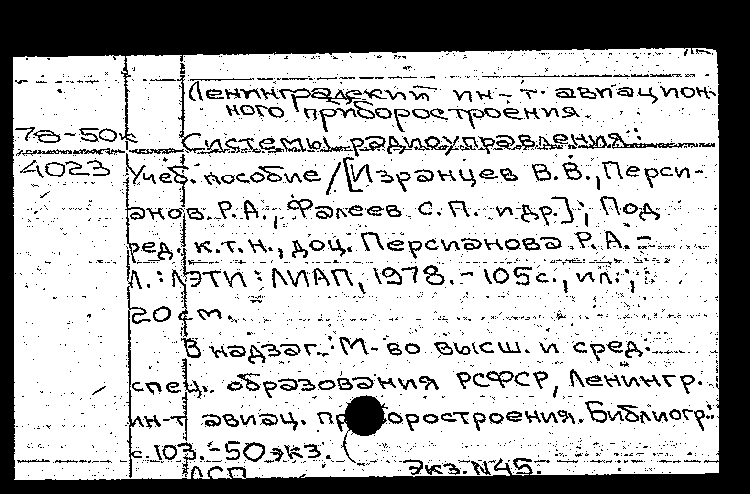 Ленинградский ин-т авиацион-
ного приборостроения.
78-50к Системы радиоуправления:
4023 Учеб. пособие/[Изранцев В.В., Перси-
анов Р.А., Фалеев С.П. и др.]; Под
ред. к.т.н., доц. Персианова Р.А. –
Л.: ЛЭТИ: ЛИАП, 1978. – 105с., ил.;
20см.
В надзаг.: М-во высш. и сред.
спец. образования РСФСР, Ленингр.
ин-т авиац. приборостроения. Библиогр.:
с.103. – 50экз.
ДСП Экз. N45.